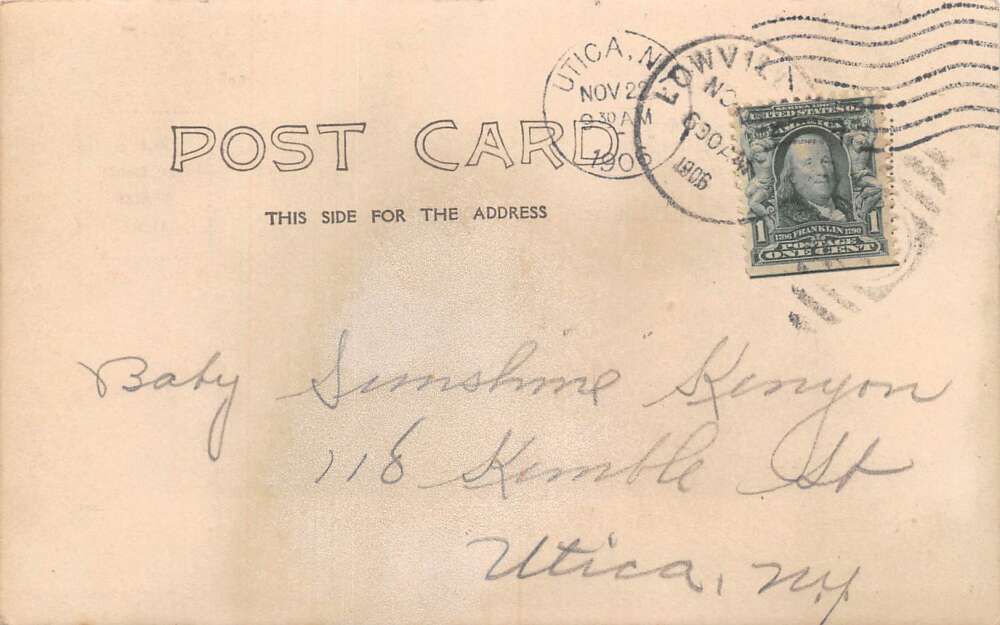 UTICA, N
NOV 22
9 30 AM
1906
LOWVILL
NO
630 AM
1906
UNITED STATES OF
AMERICA
1 1706 FRANKLIN 1790 1
POSTAGE
ONE CENT
POST CARD
THIS SIDE FOR THE ADDRESS
Baby Sunshine Kenyon
118 Kimble St
Utica, NY